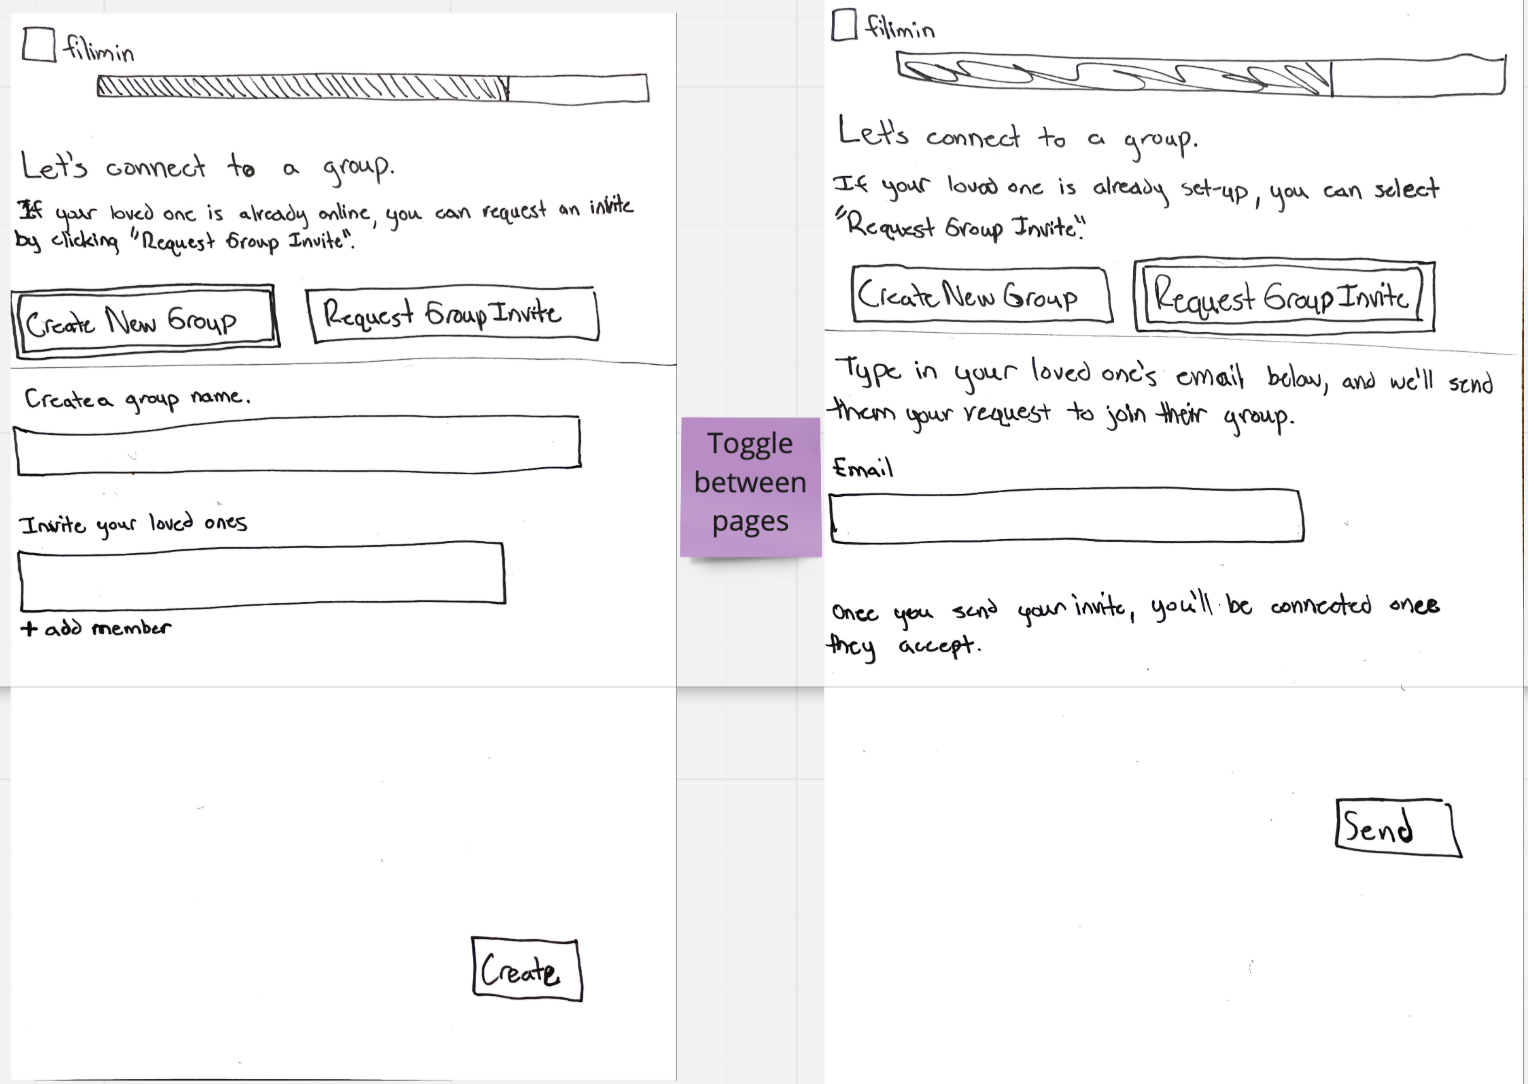 filimin
Let's connect to a group.
If your loved one is already online, you can request an invite
by clicking "Request Group Invite".
Create New Group
Request Group Invite
Create a group name.
Invite your loved ones
+ add member
Create
Toggle
between
pages
filimin
Let's connect to a group.
If your loved one is already set-up, you can select
"Request Group Invite."
Create New Group
Request Group Invite
Type in your loved one's email below, and we'll send
them your request to join their group.
Email
Once you send your invite, you'll be connected once
they accept.
Send